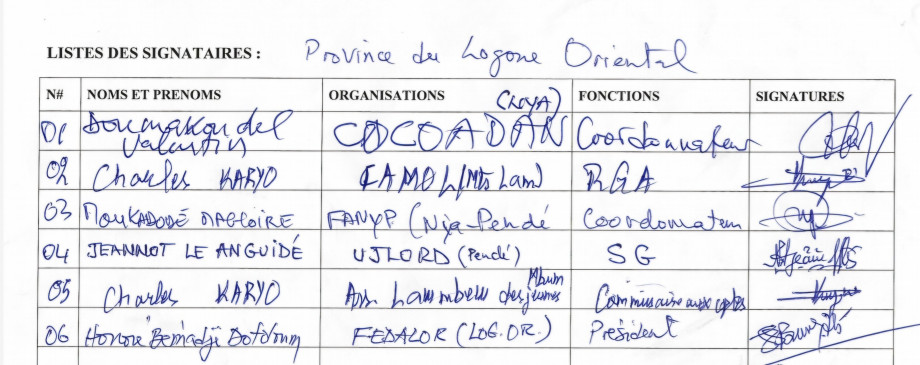 LISTES DES SIGNATAIRES : Province du Logone Oriental
N# NOMS ET PRENOMS ORGANISATIONS FONCTIONS SIGNATURES
01 Valentin COCOADAN (KOYA) Coordonnateur
02 Charles KARYO (Mts Lam) RGA
03 MOUKADODÉ MAGLOIRE FANYP (Nya-Pendé Coordonnateur
04 JEANNOT LE ANGUIDÉ UJLORD (Pendé) SG
05 Charles KARYO Ass des jeunes Mbum Commissaire aux cptes
06 Honoré Bémadji FEDALOR (LOG.OR.) Président